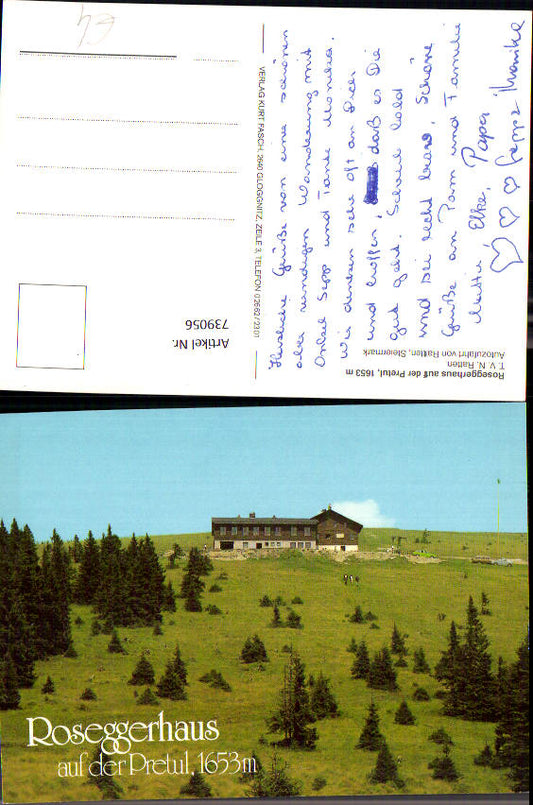 Herzliche Grüße von einer schönen
aber windigen Wanderung mit
Onkel Sepp und Tante Monika.
Wir denken sehr oft an Dich
und hoffen, daß es Dir
gut geht. Schreib bald
und sei recht brav. Schöne
Grüße an Pam und Familie
Mutti Elke, Papa
Seppi Monika
Roseggerhaus auf der Pretul, 1653 m
T. V. N. Ratten
Autozufahrt von Ratten, Steiermark
VERLAG KURT FASCH, 2640 GLOGGNITZ, ZEILE 3, TELEFON 0 26 62 / 23 01
Artikel Nr.
739056
Roseggerhaus
auf der Pretul, 1653m